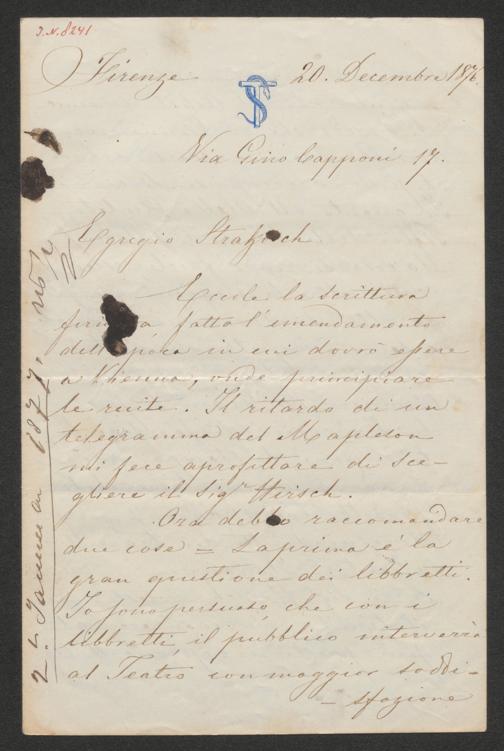 J.N. 8241
Firenze 20. Decembre 1876
Via Gino Capponi 17.
Egregio Strakosch
Eccole la scrittura
fatto l'emendamento
dell'epoca in cui dovrò essere
a Vienna, onde principiare
le recite. Il ritardo di un
telegramma del Mapleson
mi fece aprofittare di sce-
gliere il Sigr Hirsch.
Ora debbo raccomandare
due cose = La prima é la
gran questione dei libbretti.
Io sono persuaso, che con i
libbretti, il pubblico interverrà
al Teatro con maggior soddi-
- sfazione
1877.